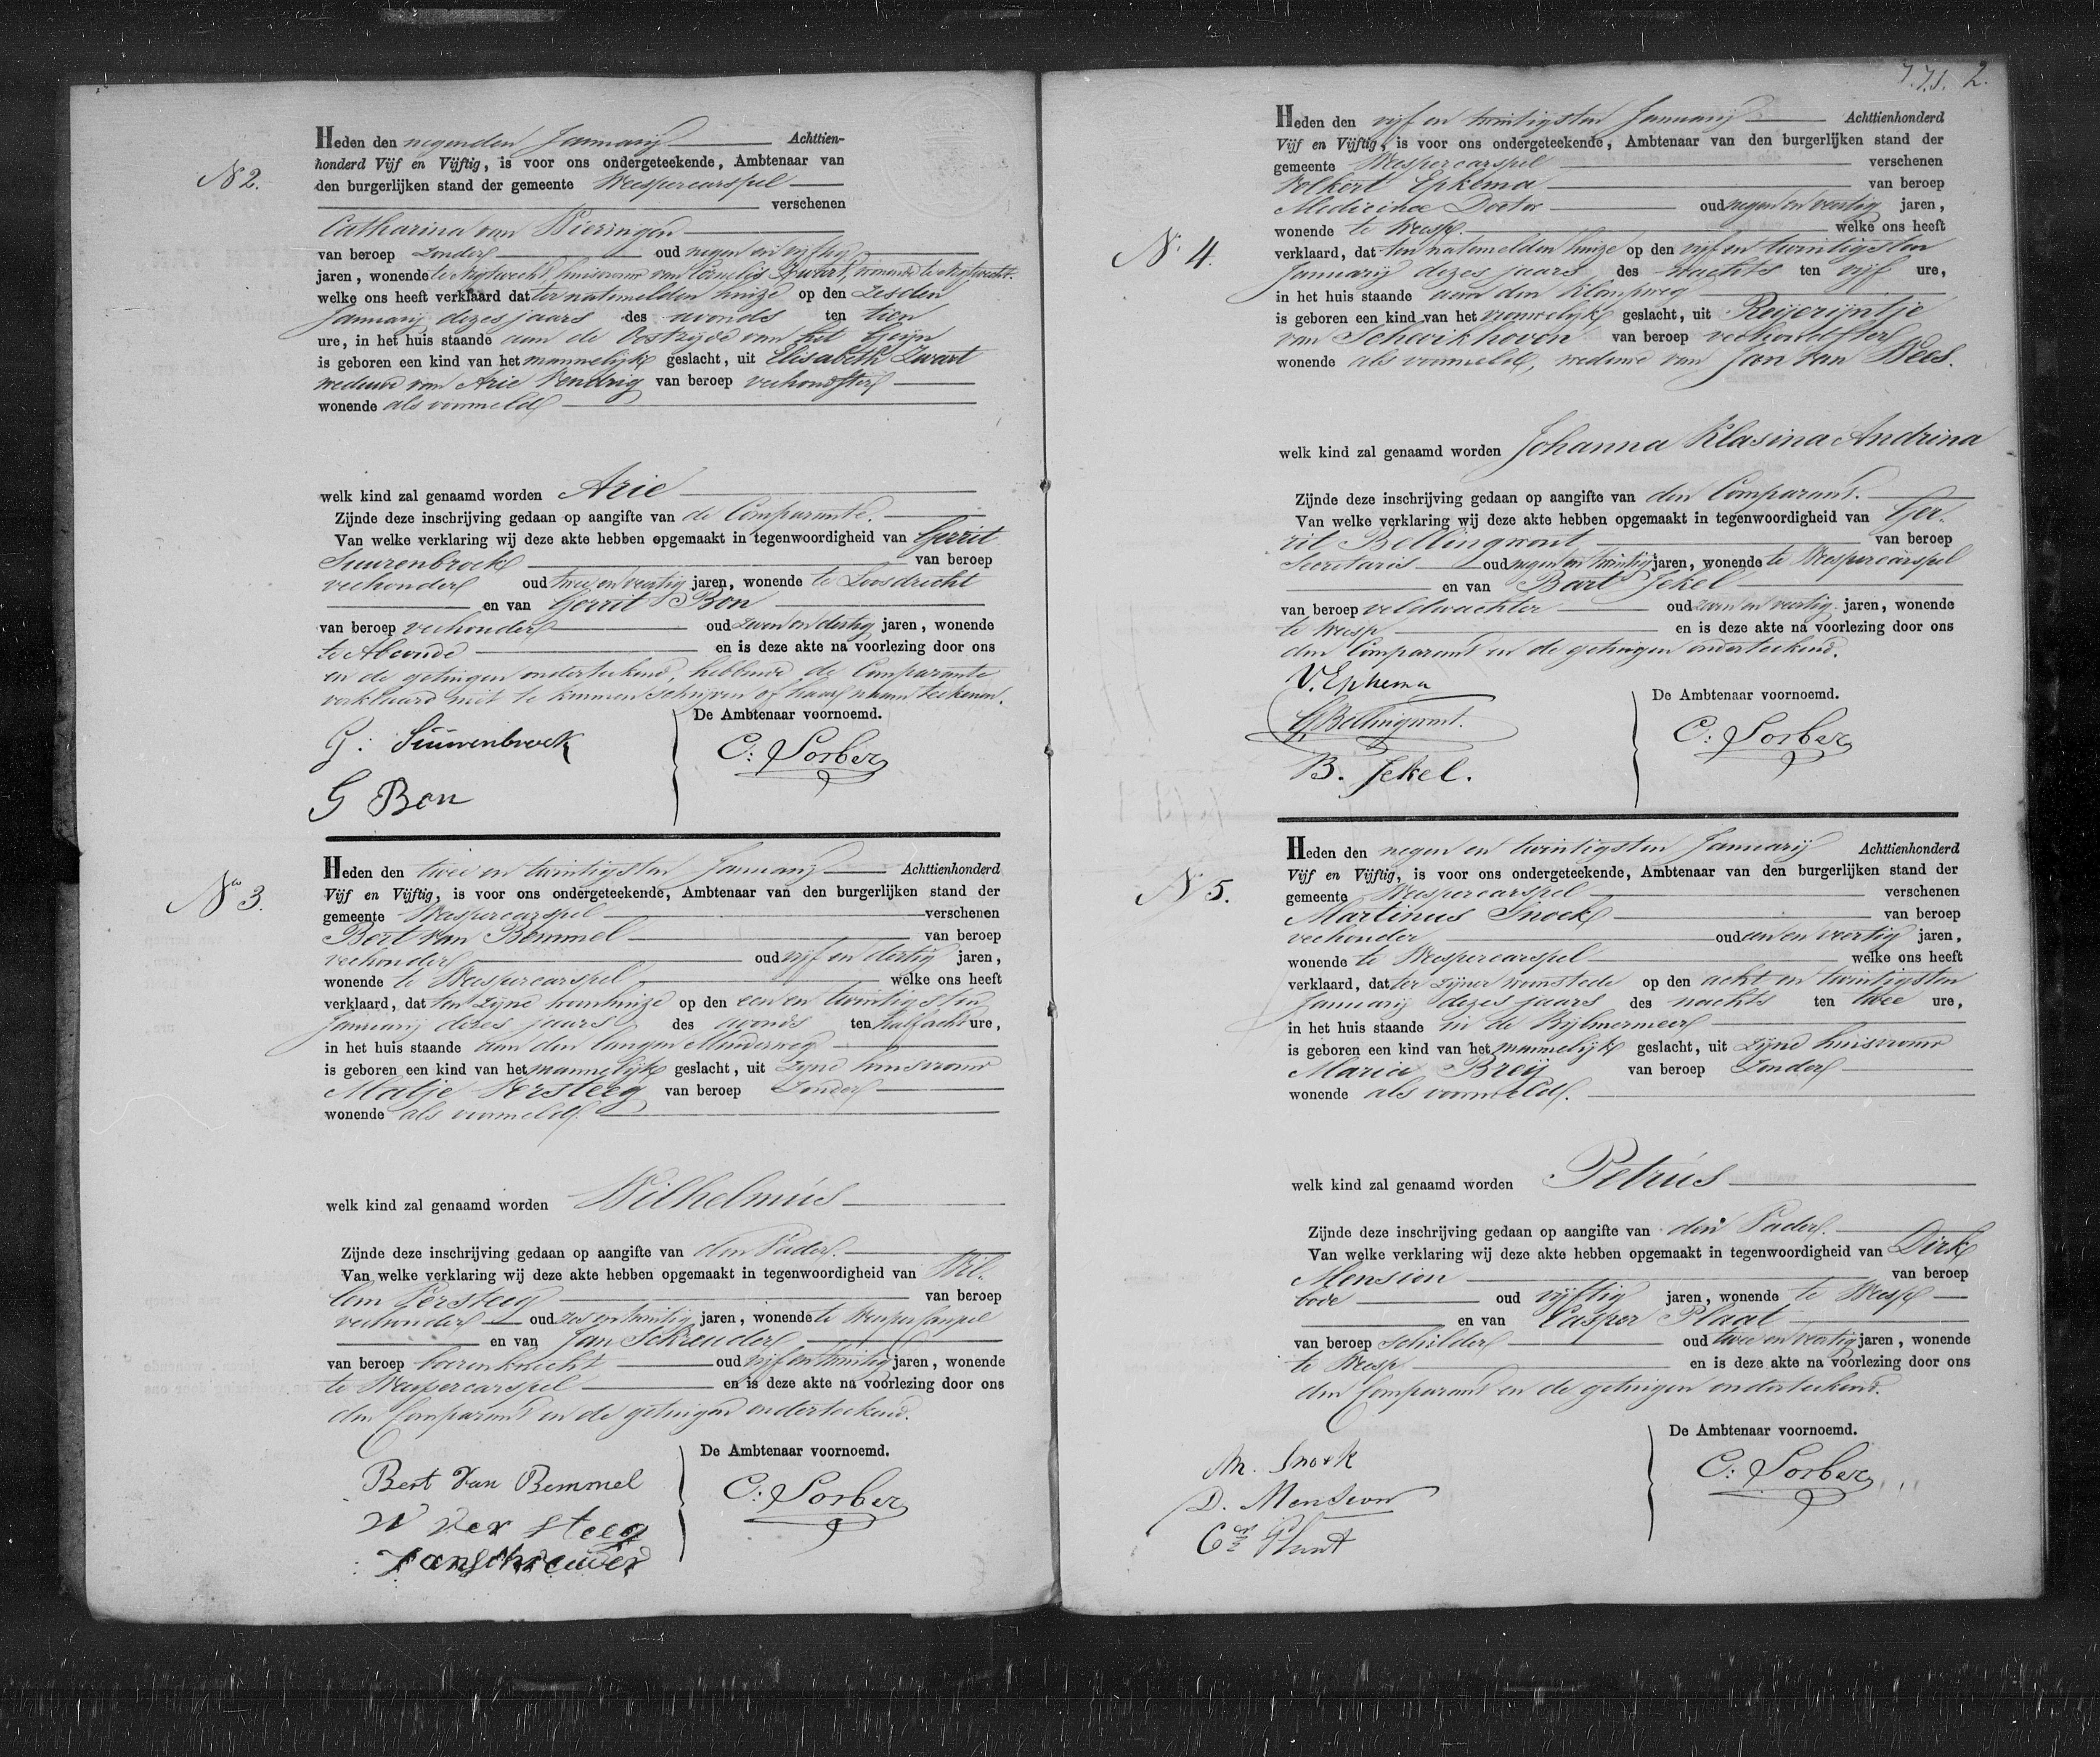 N 2.
Heden den negenden Januarij Achttien-
honderd Vijf en Vijftig, is voor ons ondergeteekende, Ambtenaar van
den burgerlijken stand der gemeente Weespercarspel
verschenen
Catharina van Wieringen
van beroep zonder oud negen en vijftig
jaren, wonende te Nigtevecht, huisvrouw van Cornelis Zwart, wonende te Nigtevecht.
welke ons heeft verklaard dat ter natemelden huize op den zesden
Januarij dezes jaars des avonds ten tien
ure, in het huis staande aan de Oostzijde van het Geijn
is geboren een kind van het mannelijk geslacht, uit Elisabeth Zwart
weduwe van Arie Vendrig van beroep veehoudster
wonende als voormeld
welk kind zal genaamd worden Arie
Zijnde deze inschrijving gedaan op aangifte van de Comparante.
Van welke verklaring wij deze akte hebben opgemaakt in tegenwoordigheid van Gerrit
Suurenbroek van beroep
veehouder oud twee en veertig jaren, wonende te Loosdrecht
en van Gerrit Bon
van beroep veehouder oud zeven en dertig jaren, wonende
te Abcoude en is deze akte na voorlezing door ons
en de getuigen onderteekend, hebbende de Comparante
verklaard niet te kunnen schrijven of haar naam teekenen.
De Ambtenaar voornoemd.
G: Suurenbroek
C: Sorber
G Bon
No 3.
Heden den twee en twintigsten Januarij Achttienhonderd
Vijf en Vijftig, is voor ons ondergeteekende, Ambtenaar van den burgerlijken stand der
gemeente Weespercarspel verschenen
Bert van Bemmel van beroep
veehouder oud vijf en dertig jaren,
wonende te Weespercarspel welke ons heeft
verklaard, dat ten zijne woonhuize op den een en twintigsten
Januarij dezes jaars des avonds ten half acht ure,
in het huis staande aan den langen Muiderweg
is geboren een kind van het mannelijk geslacht, uit zijne huisvrouw
Matje Versteeg van beroep zonder
wonende als voormeld.
welk kind zal genaamd worden Wilhelmus
Zijnde deze inschrijving gedaan op aangifte van den Vader.
Van welke verklaring wij deze akte hebben opgemaakt in tegenwoordigheid van Wil-
lem Versteeg van beroep
veehouder oud zes en twintig jaren, wonende te Weespercarspel
en van Jan Schreuder
van beroep boerenknecht oud vijf en twintig jaren, wonende
te Weespercarspel en is deze akte na voorlezing door ons
den Comparant en de getuigen onderteekend.
De Ambtenaar voornoemd.
Bert Van Bemmel
C: Sorber
W ver steeg
Jan schreuder
2.
N. 4.
Heden den vijf en twintigsten Januarij Achttienhonderd
Vijf en Vijftig, is voor ons ondergeteekende, Ambtenaar van den burgerlijken stand der
gemeente Weespercarspel verschenen
Volkert Epkema van beroep
Medicinae Doctor oud negen en veertig jaren,
wonende te Weesp welke ons heeft
verklaard, dat ten natemelden huize op den vijf en twintigsten
Januarij dezes jaars des nachts ten vijf ure,
in het huis staande aan den Klompweg
is geboren een kind van het vrouwelijk geslacht, uit Reijerijntje
van Schaikhoven van beroep veehoudster
wonende als voormeld, weduwe van Jan van Wees.
welk kind zal genaamd worden Johanna Klasina Andrina
Zijnde deze inschrijving gedaan op aangifte van den Comparant.
Van welke verklaring wij deze akte hebben opgemaakt in tegenwoordigheid van Ger-
rit Bellingwout van beroep
Secretaris oud negen en twintig jaren, wonende te Weespercarspel
en van Bart Jekel
van beroep veldwachter oud zeven en veertig jaren, wonende
te Weesp en is deze akte na voorlezing door ons
den Comparant en de getuigen onderteekend.
V. Epkema
De Ambtenaar voornoemd.
G Bellingwout.
C: Sorber
B. Jekel.
N 5.
Heden den negen en twintigsten Januarij Achttienhonderd
Vijf en Vijftig, is voor ons ondergeteekende, Ambtenaar van den burgerlijken stand der
gemeente Weespercarspel verschenen
Martinus Snoek van beroep
veehouder oud een en veertig jaren,
wonende te Weespercarspel welke ons heeft
verklaard, dat ter zijner woonstede op den acht en twintigsten
Januarij dezes jaars des nachts ten twee ure,
in het huis staande in de Bijlmermeer
is geboren een kind van het mannelijk geslacht, uit zijne huisvrouw
Maria Breij van beroep zonder
wonende als voormeld.
welk kind zal genaamd worden Petrus
Zijnde deze inschrijving gedaan op aangifte van den Vader.
Van welke verklaring wij deze akte hebben opgemaakt in tegenwoordigheid van Dirk
Mension van beroep
bode oud vijftig jaren, wonende te Weesp
en van Casper Plaat
van beroep schilder oud twee en veertig jaren, wonende
te Weesp en is deze akte na voorlezing door ons
den Comparant en de getuigen onderteekend.
De Ambtenaar voornoemd.
M. Snoek
C: Sorber
D. Mension
Plaat